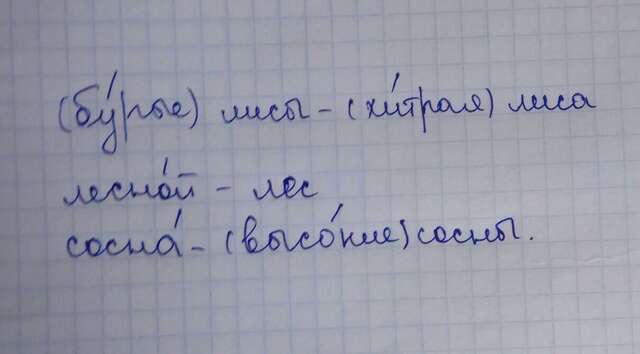 (бу́рые) лисы - (хи́трая) лиса
лесно́й - лес
сосна́ - (высо́кие) сосны.